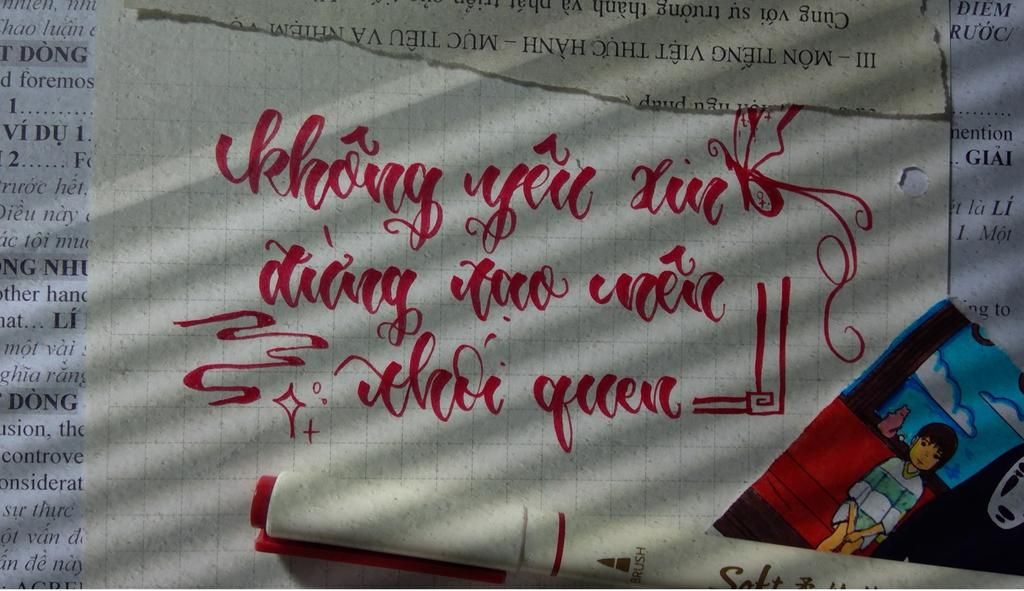 Cùng với sự trưởng thành và phát triển
III – MÔN TIẾNG VIỆT THỰC HÀNH – MỤC TIÊU VÀ NHIỆM VỤ
ngữ pháp
không yêu xin
đừng tạo nên
thói quen
nhiên,
hao luận
T DÒNG
d foremos
1.......
VÍ DỤ 1.
2......
rước hết,
Điều này
ác tôi mu
ONG NHU
other hand
hat... LÍ
một vài
ghĩa rằng
DÒNG
usion, the
controve
onsiderat
sự thực
ột vấn đ
ấn đề này
AGREE
ĐIỂM
RƯỚC/
mention
GIẢI
t là LÍ
1. Một
ng to
BRUSH
Soft